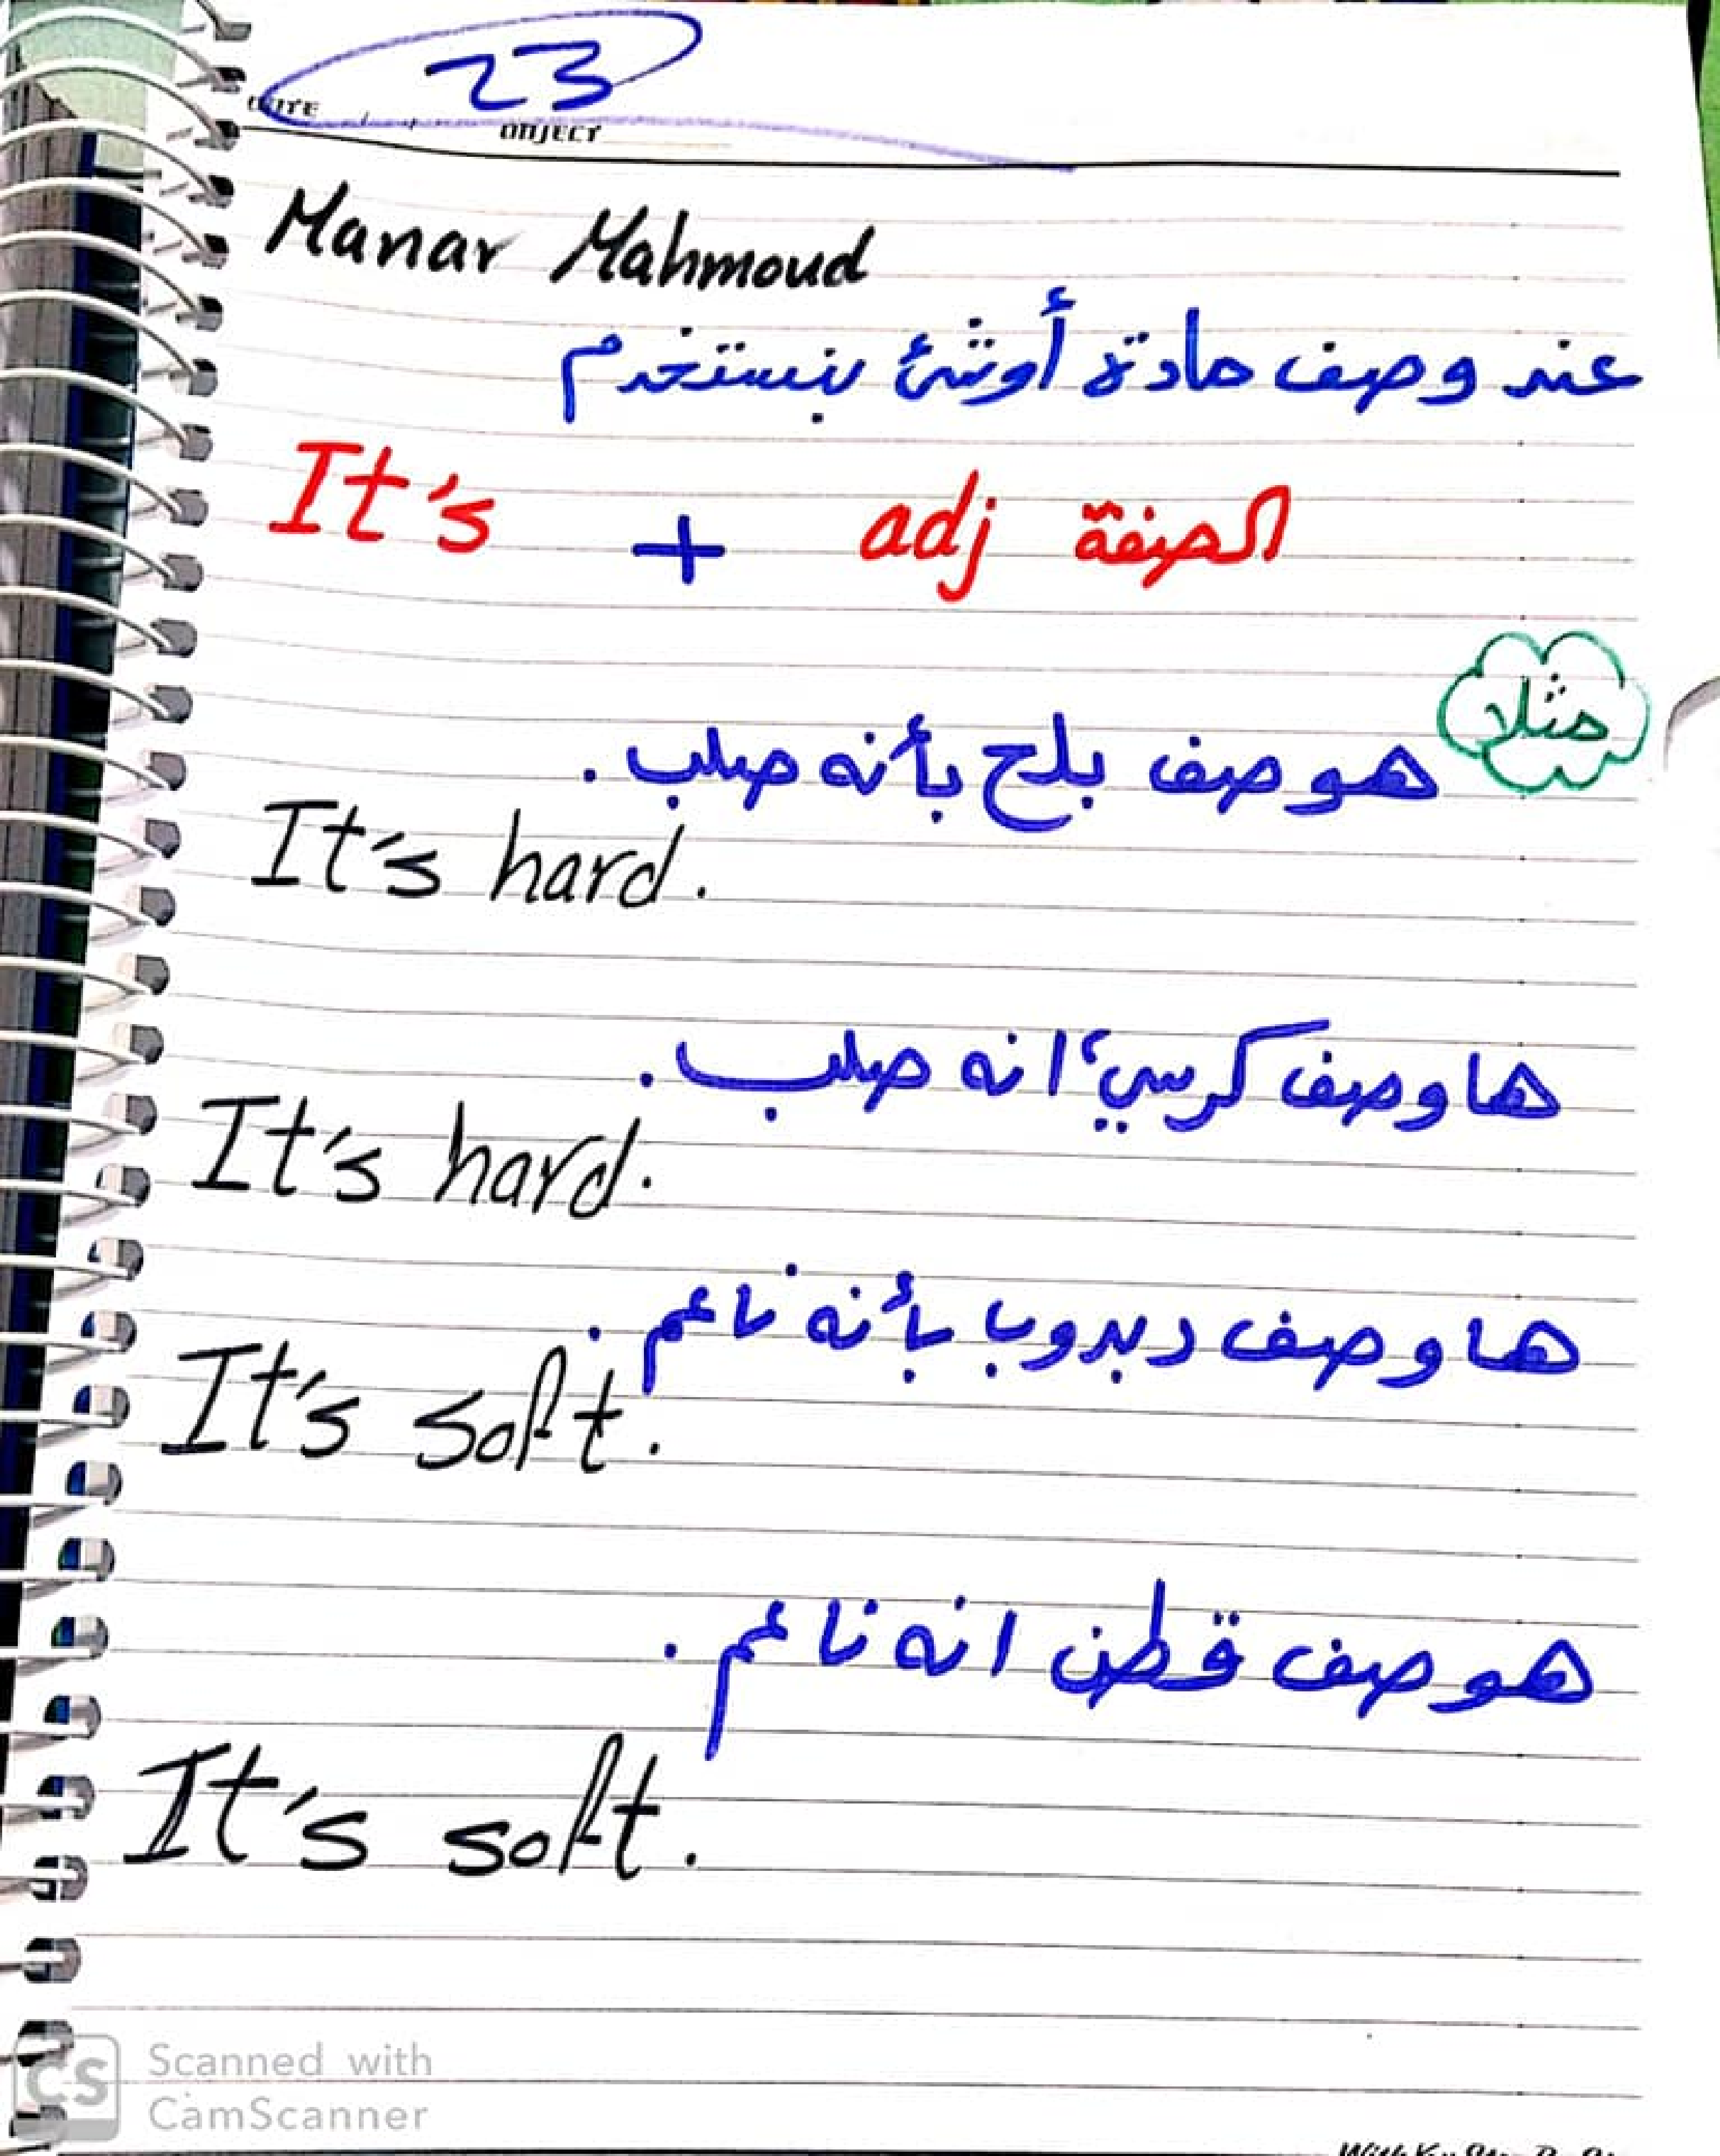 23
DATE
OBJECT
Manar Mahmoud
عند وصف مادة أو شئ بنستخدم
It's + adj الصفة
مثلا
هوصف بلح بأنه صلب .
It's hard.
هاوصف كرسيء انه صلب .
It's hard.
هاوصف دبدوب بأنه ناعم .
It's soft.
هوصف قطن انه ناعم .
It's soft.
CS Scanned with
CamScanner